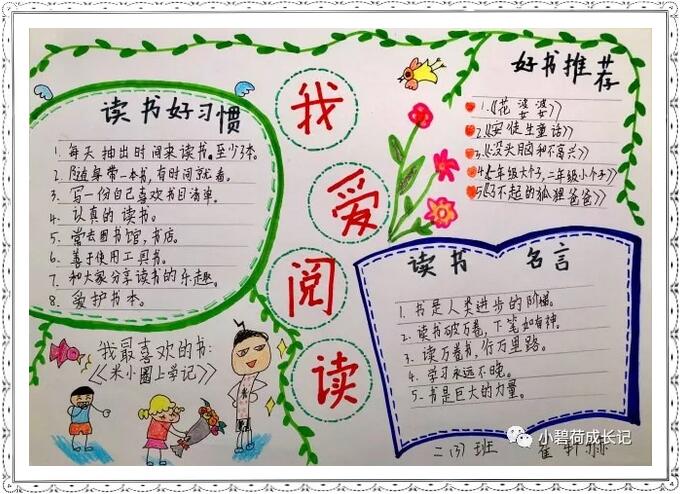 我爱阅读
读书好习惯
1. 每天抽出时间来读书。至少3本.
2. 随身带一本书,有时间就看。
3. 写一份自己喜欢书目清单。
4. 认真的读书。
5. 常去图书馆,书店。
6. 善于使用工具书。
7. 和大家分享读书的乐趣。
8. 爱护书本。
我最喜欢的书:
《米小圈上学记》
好书推荐
1.《花婆婆》
2.《安徒生童话》
3.《没头脑和不高兴》
4.《一年级大个子,二年级小个子》
5.《了不起的狐狸爸爸》
读书 名言
1. 书是人类进步的阶梯。
2. 读书破万卷,下笔如有神。
3. 读万卷书,行万里路。
4. 学习永远不晚。
5. 书是巨大的力量。
二(3)班 崔
小碧荷成长记